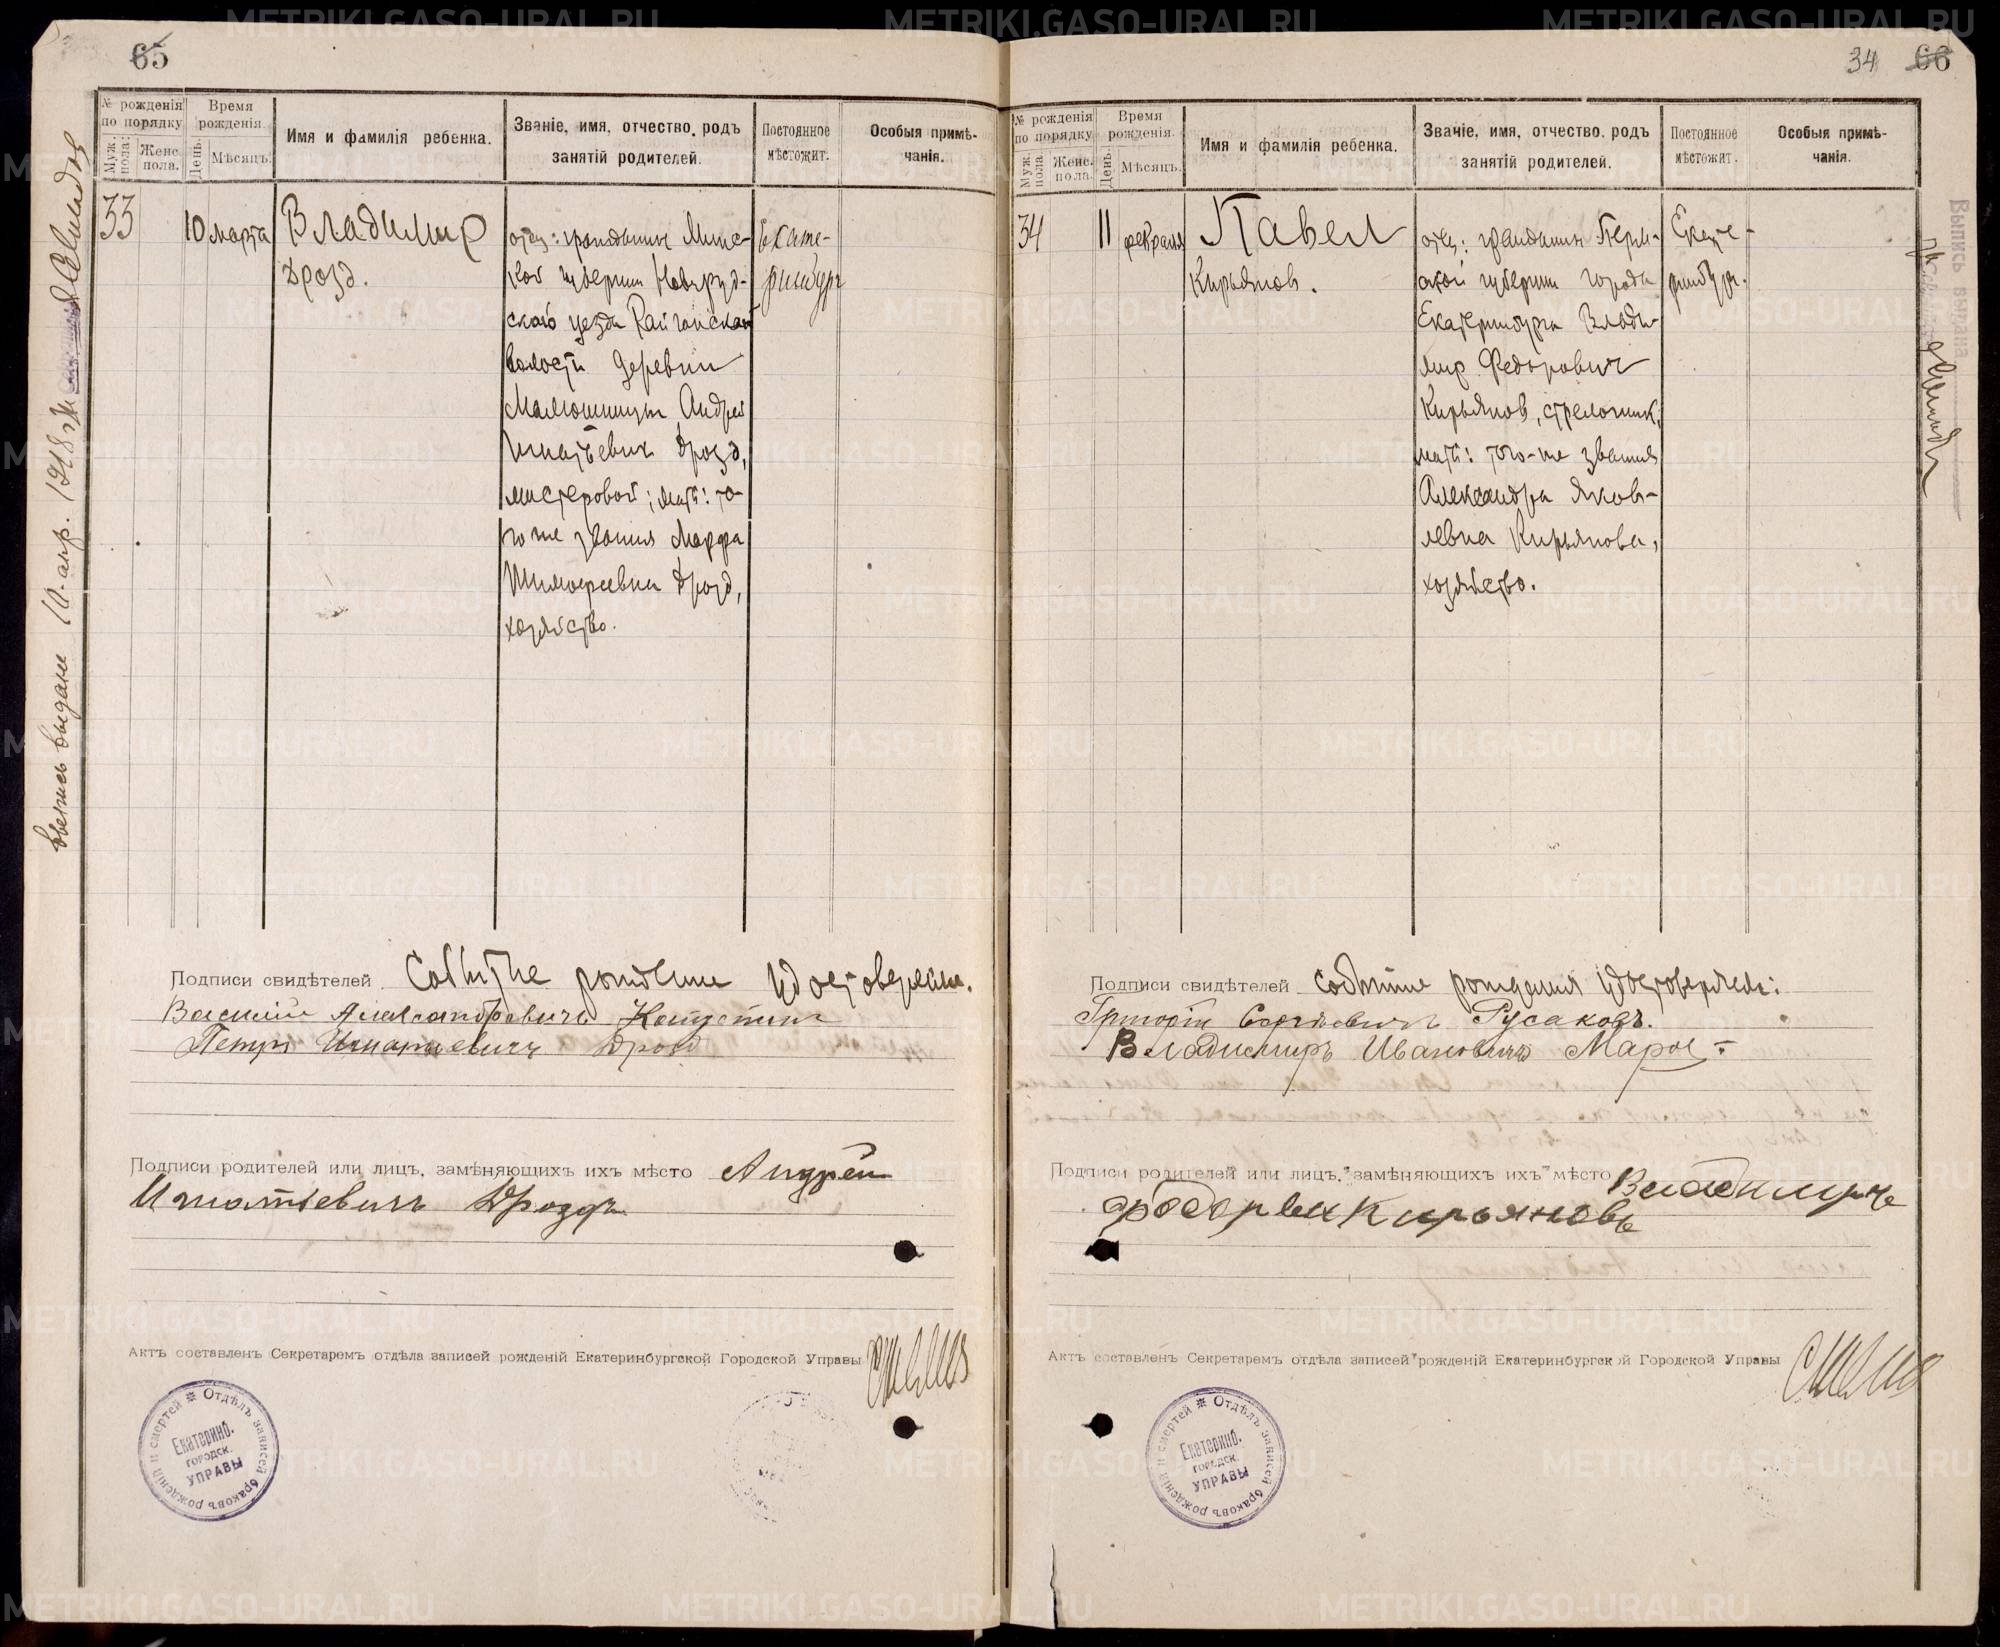 65
№ рожденія по порядку
Муж. пола.
Женс. пола.
Время рожденія.
День.
Мѣсяцъ.
Имя и фамилія ребенка.
Званіе, имя, отчество, родъ занятій родителей.
Постоянное мѣстожит.
Особыя примѣчанія.
33
10 марта
Владимир
Дрозд.
отец: гражданин Минс-
кой губернии Новгруд-
ского уезда Райчанской
волости деревни
Малюшицы Андрей
Игнатьевич Дрозд,
мастеровой; мать: то-
го же звания Марфа
Тимофеевна Дрозд,
хозяйство.
Екате-
ринбург
выпись выдана 10 апр. 1918 г.
Подписи свидѣтелей Событие рождения удостоверяем.
Василий Александровичъ Капустин
Петръ Игнатьевичъ Дрозд
Подписи родителей или лицъ, замѣняющихъ ихъ мѣсто Андрей
Игнатьевичъ Дроздъ
Актъ составленъ Секретаремъ отдѣла записей рожденій Екатеринбургской Городской Управы
Отдѣлъ записей браковъ рожденія и смертей
Екатеринб.
городск.
УПРАВЫ
34 66
№ рожденія по порядку
Муж. пола.
Женс. пола.
Время рожденія.
День.
Мѣсяцъ.
Имя и фамилія ребенка.
Званіе, имя, отчество, родъ занятій родителей.
Постоянное мѣстожит.
Особыя примѣчанія.
34
11 февраля
Павел
Кирьянов.
отец: гражданин Перм-
ской губернии города
Екатеринбурга Влади-
мир Федорович
Кирьянов, стрелочник;
мать: того-же звания
Александра Яков-
левна Кирьянова,
хозяйство.
Екате-
ринбург.
Выпись выдана
Подписи свидѣтелей событие рождения удостоверяем:
Григорій Сергѣевичъ Русаковъ.
Владимиръ Ивановичъ
Подписи родителей или лицъ, замѣняющихъ ихъ мѣсто Владимиръ
Кирьяновъ
Актъ составленъ Секретаремъ отдѣла записей рожденій Екатеринбургской Городской Управы
Отдѣлъ записей браковъ рожденія и смертей
Екатеринб.
городск.
УПРАВЫ
METRIKI.GASO-URAL.RU